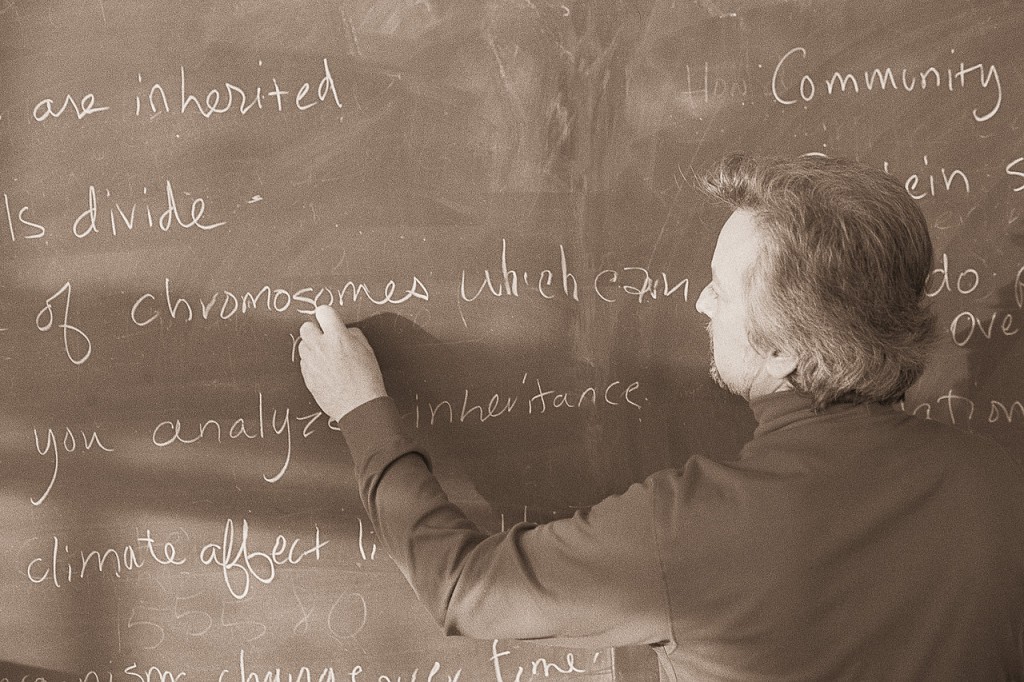 are inherited
ls divide
of chromosomes which can
you analyze inheritance.
climate affect li
555 80
nism change over time.
How Community
ein s
do
ove
ation